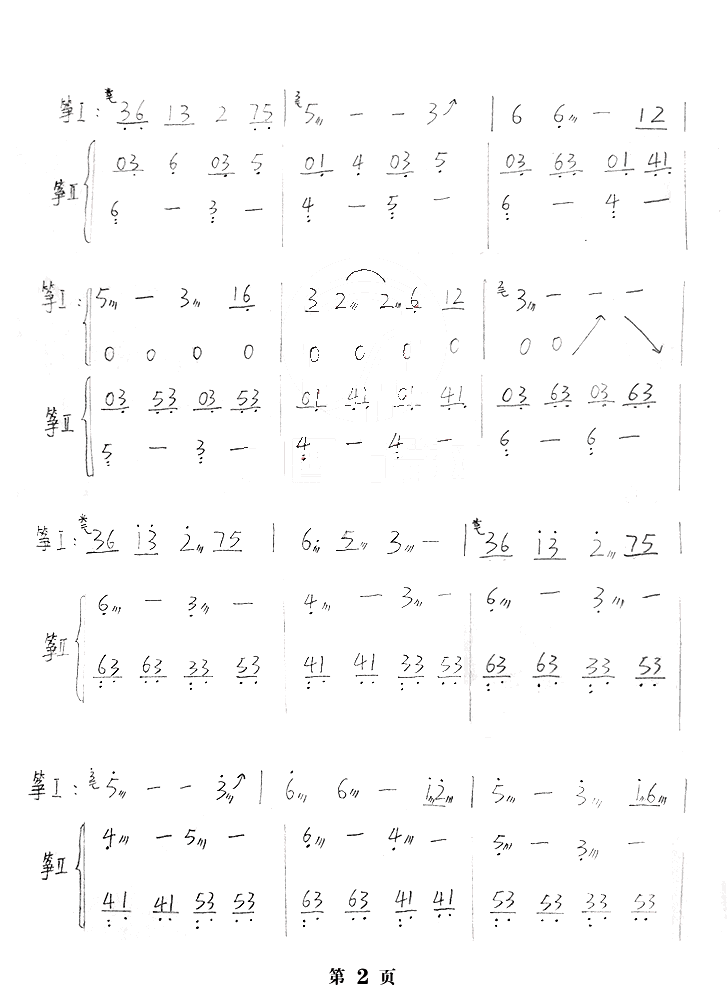 筝Ⅰ: 36 13 2 75 | 5 - - 3↗ | 6 6 - 12 |
筝Ⅱ 03 6 03 5 | 01 4 03 5 | 03 63 01 41
6 - 3 - | 4 - 5 - | 6 - 4 -
筝Ⅰ: 5 - 3 16 | 3 2 2 6 12 | 3 - - -
0 0 0 0 | 0 0 0 0 | 0 0 ↗ ↘
筝Ⅱ 03 53 03 53 | 01 41 01 41 | 03 63 03 63
5 - 3 - | 4 - 4 - | 6 - 6 -
筝Ⅰ: 36 i̇3̇ 2̇ 75 | 6 5 3 - | 36 i̇3̇ 2̇ 75 |
筝Ⅱ 6 - 3 - | 4 - 3 - | 6 - 3 -
63 63 33 53 | 41 41 33 53 | 63 63 33 53
筝Ⅰ: 5̇ - - 3̇↗ | 6̇ 6 - i̇2̇ | 5̇ - 3̇ i̇6 |
筝Ⅱ 4 - 5 - | 6 - 4 - | 5 - 3 -
41 41 53 53 | 63 63 41 41 | 53 53 33 53
第 2 页